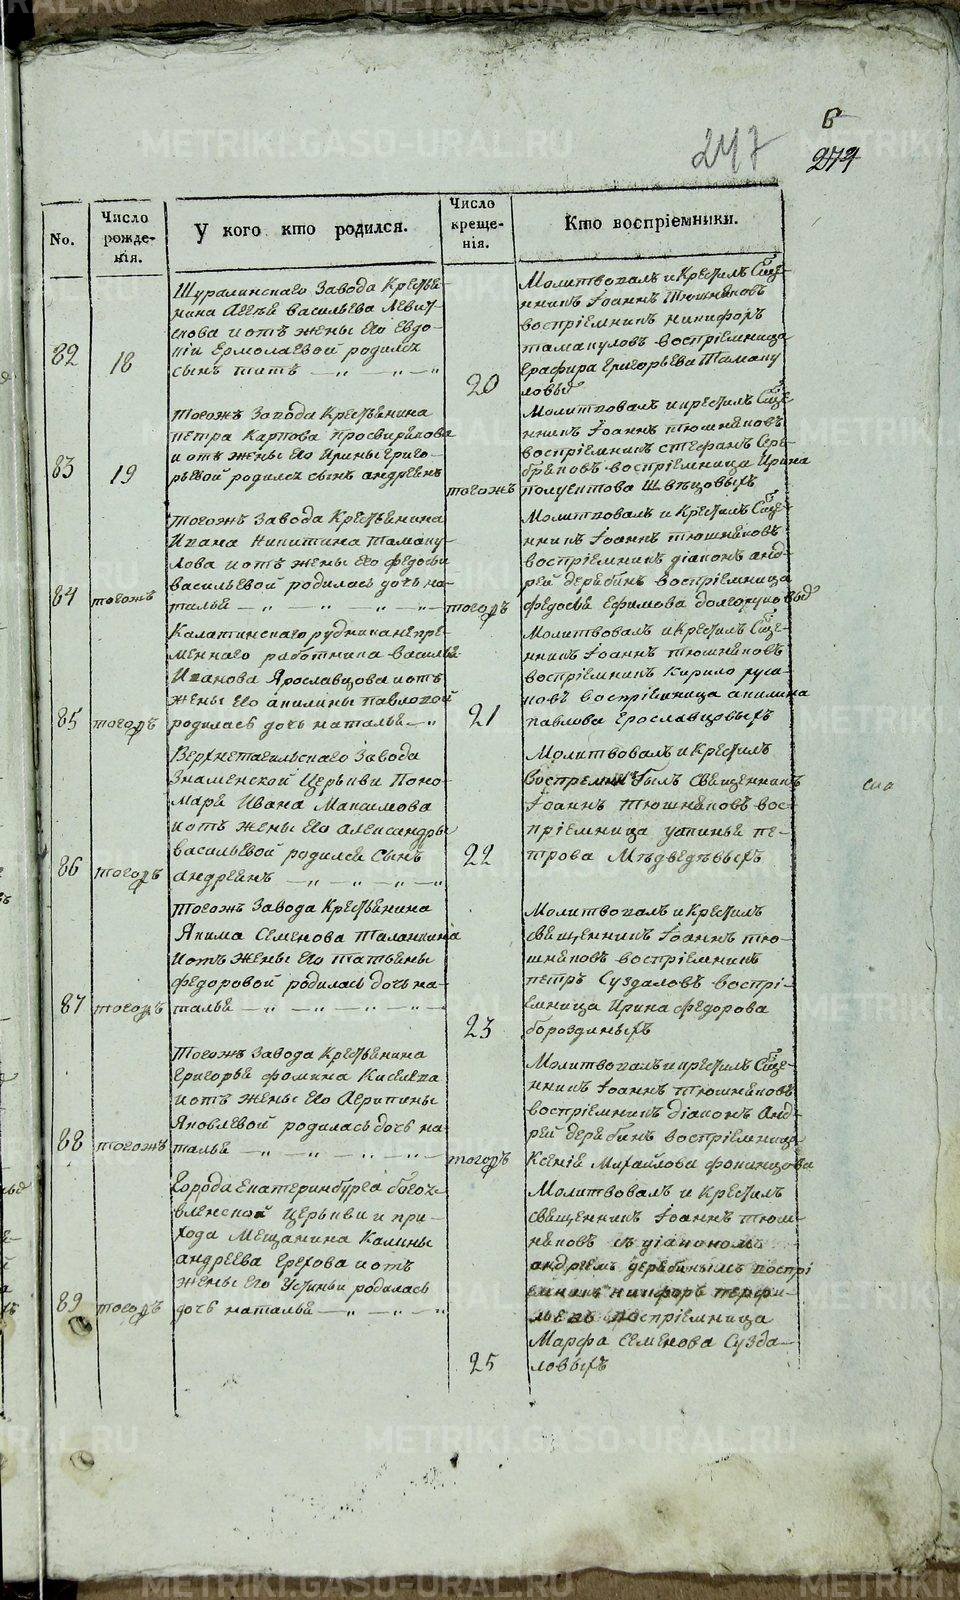 247
6
274
No.
Число рожде-нія.
У кого кто родился.
Число креще-нія.
Кто воспріемники.
82
18
Шуралинскаго Завода Крестья-
нина Авѣя васильева Левит-
скова и отъ жены Его Евдо-
кіи Ермолаевой родился
сынъ титъ
20
Молитвовалъ и Крестилъ Свяще-
нникъ Іоаннъ Тюшняковъ
воспріемникъ никифоръ
тамакуловъ воспріемница
Григорьева Тамаку
ловы
83
19
тогожъ Завода Крестьянина
петра Карпова Просвирекова
и отъ жены Его Ирины григо-
рьевой родился сынъ андреянъ
тогожъ
Молитвовалъ и крестилъ Свяще
нникъ Іоаннъ тюшняковъ
воспріемникъ стефанъ Сере-
бряковъ воспріемница Ирина
полуектова Швецовыхъ
84
тогожъ
тогожъ Завода Крестьянина
Ивана Никитина Тамаку-
лова и отъ жены Его федосьи
васильевой родилась дочь на-
талья
тогожъ
Молитвовалъ и Крестилъ Свяще-
нникъ Іоаннъ тюшняковъ
воспріемникъ діаконъ анд-
рей дерябинъ воспріемница
федосья Ефимова долгорукова
85
тогожъ
Калатинскаго рудника непре-
меннаго работника василья
Иванова Ярославцова и отъ
жены Его акилины павловой
родилась дочь наталья
21
Молитвовалъ и Крестилъ Свяще-
нникъ Іоаннъ тюшняковъ
воспріемникъ Кирило руса-
ковъ воспріемница акилина
павлова Ерославцовыхъ
86
тогожъ
Верхнетагильскаго Завода
Знаменской Церькви Поно-
маря Ивана Максимова
и отъ жены Его александры
васильевой родился сынъ
андреянъ
22
Молитвовалъ и Крестилъ
былъ священникъ
Іоаннъ тюшняковъ вос-
пріемница устинья пе-
трова Мѣдведѣвыхъ
87
тогожъ
тогожъ Завода Крестьянина
Якима Семенова Таланкина
и отъ жены Его татьяны
федоровой родилась дочь на-
талья
23
Молитвовалъ и Крестилъ
священникъ Іоаннъ тю-
шняковъ воспріемникъ
петръ Суздаловъ воспрі-
емница Ирина федорова
бороздиныхъ
88
тогожъ
тогожъ Завода Крестьянина
григорья фомина Киселева
и отъ жены Его Агрипины
Яковлевой родилась дочь на
талья
тогожъ
Молитвовалъ и крестилъ Свяще-
нникъ Іоаннъ тюшняковъ
воспріемникъ діаконъ анд-
рей дерябинъ воспріемница
Ксенія Михайлова
89
тогожъ
города Екатеринбурга богоя-
вленской Церькви и при-
хода Мещанина Калины
андреева Ерехова и отъ
жены Его Устиньи родилась
дочь наталья
25
Молитвовалъ и Крестилъ
священникъ Іоаннъ тюш-
няковъ съ діакономъ
андреемъ дерябинымъ воспрі
емникъ никифоръ перфи-
льевъ воспріемница
Марфа семенова Сузда-
ловыхъ